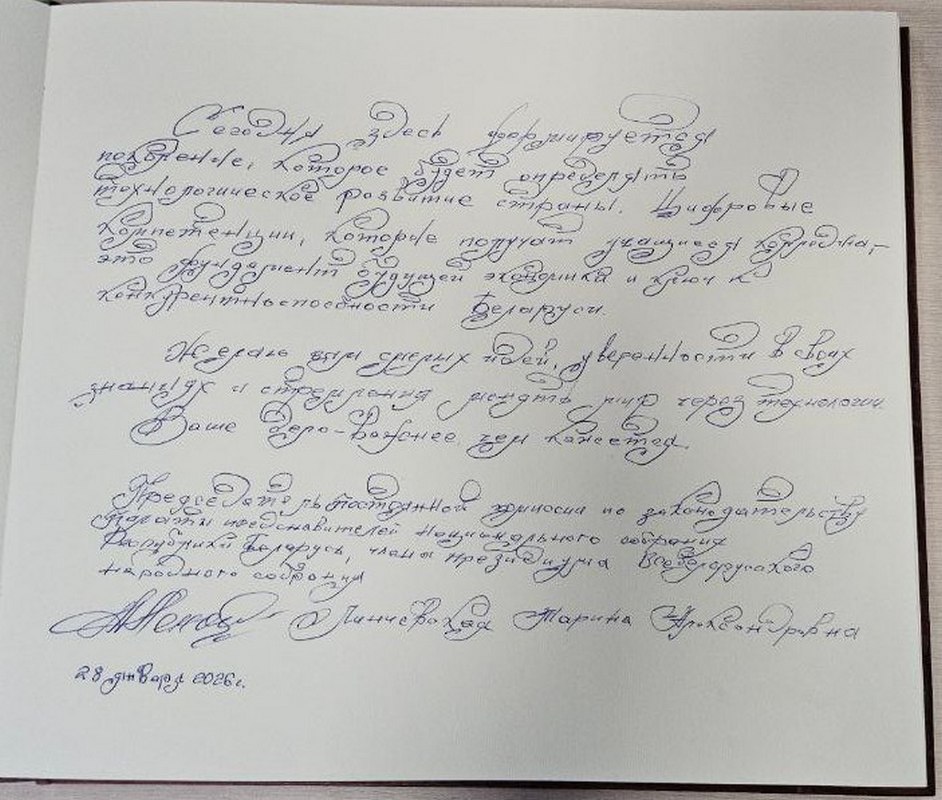 Сегодня здесь формируется
поколение, которое будет определять
технологическое развитие страны. Цифровые
компетенции, которые получат учащиеся колледжа,-
это фундамент будущей экономики и ключ к
конкурентноспособности Беларуси.
Желаю вам смелых идей, уверенности в своих
знаниях и стремления менять мир через технологии.
Ваше дело - важнее чем кажется.
Председатель Постоянной комиссии по законодательству
Палаты представителей Национального собрания
Республики Беларусь, член Президиума Всебелорусского
народного собрания
Ленчевская Марина Александровна
28 января 2026 г.